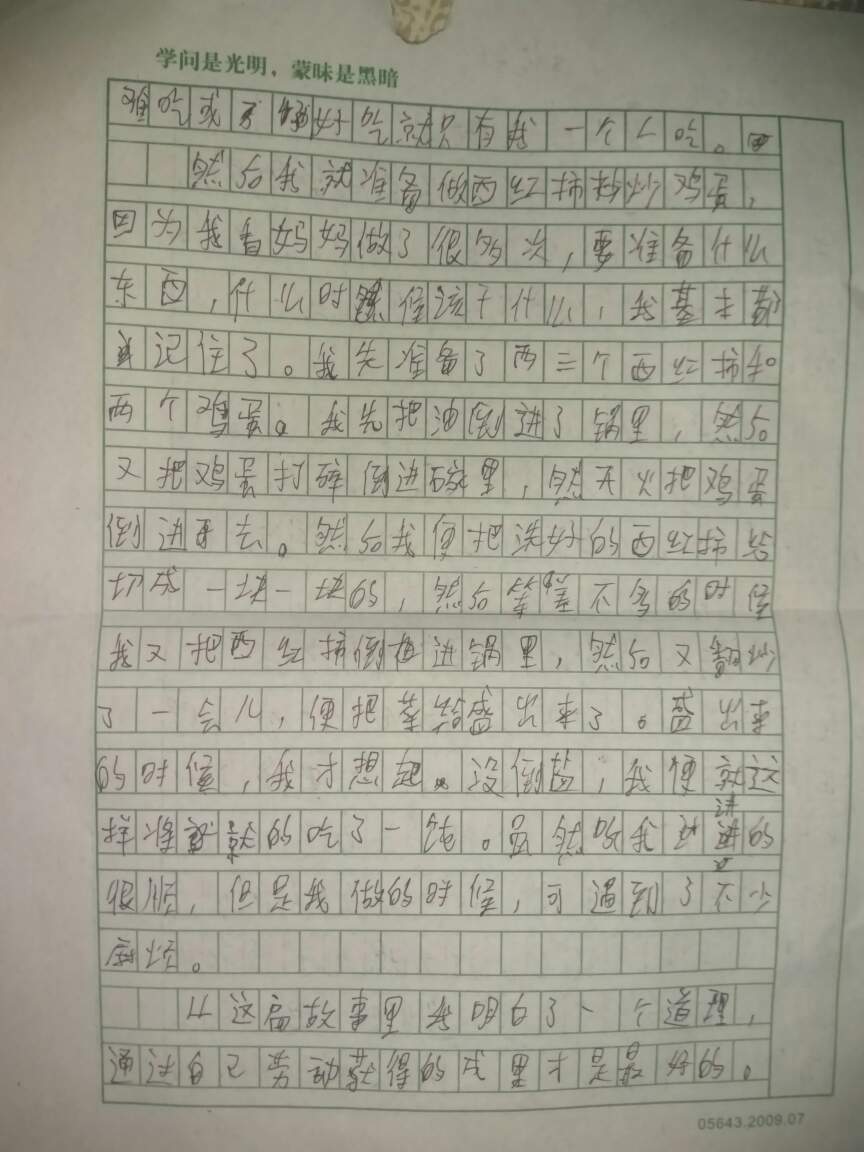 学问是光明，蒙昧是黑暗
难吃或不好吃就只有我一个人吃。
然后我就准备做西红柿炒鸡蛋，
因为我看妈妈做了很多次，要准备什么
东西，什么时候该干什么，我基本都
记住了。我先准备了两三个西红柿和
两个鸡蛋。我先把油倒进了锅里，然后
又把鸡蛋打碎倒进碗里，然开火把鸡蛋
倒进去。然后我便把洗好的西红柿给
切成一块一块的，然后等差不多的时候
我又把西红柿倒进锅里，然后又翻炒
了一会儿，便把菜给盛出来了。盛出来
的时候，我才想起没倒盐，我便就这
样将就的吃了一饨。虽然我进的
很顺，但是我做的时候，可遇到了不少
麻烦。
从这篇故事里我明白了一个道理，
通过自己劳动获得的成果才是最好的。
05643.2009.07